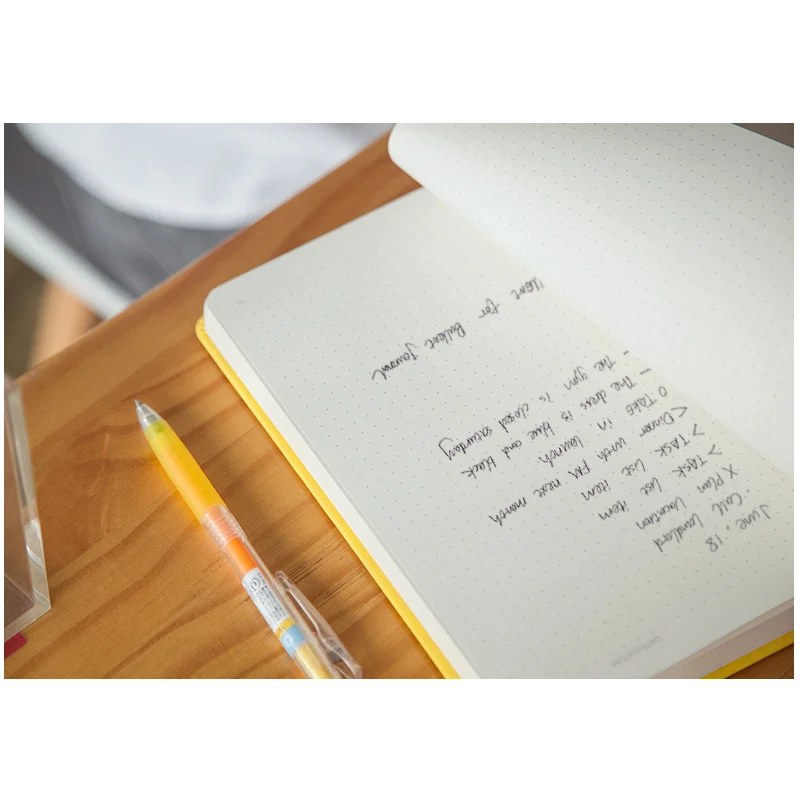 June. 18
. Call Landlord
X Plan Vacation
> TASK List item
> TASK List item
< Dinner with FM next month
O TAKE in launch
- The dress is blue and black
- The gym is closed saturday
for Bullet Journal